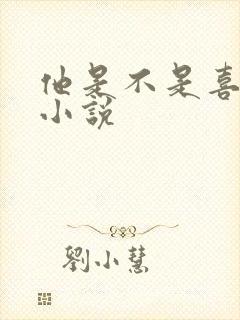 他是不是喜
小說
劉小慧